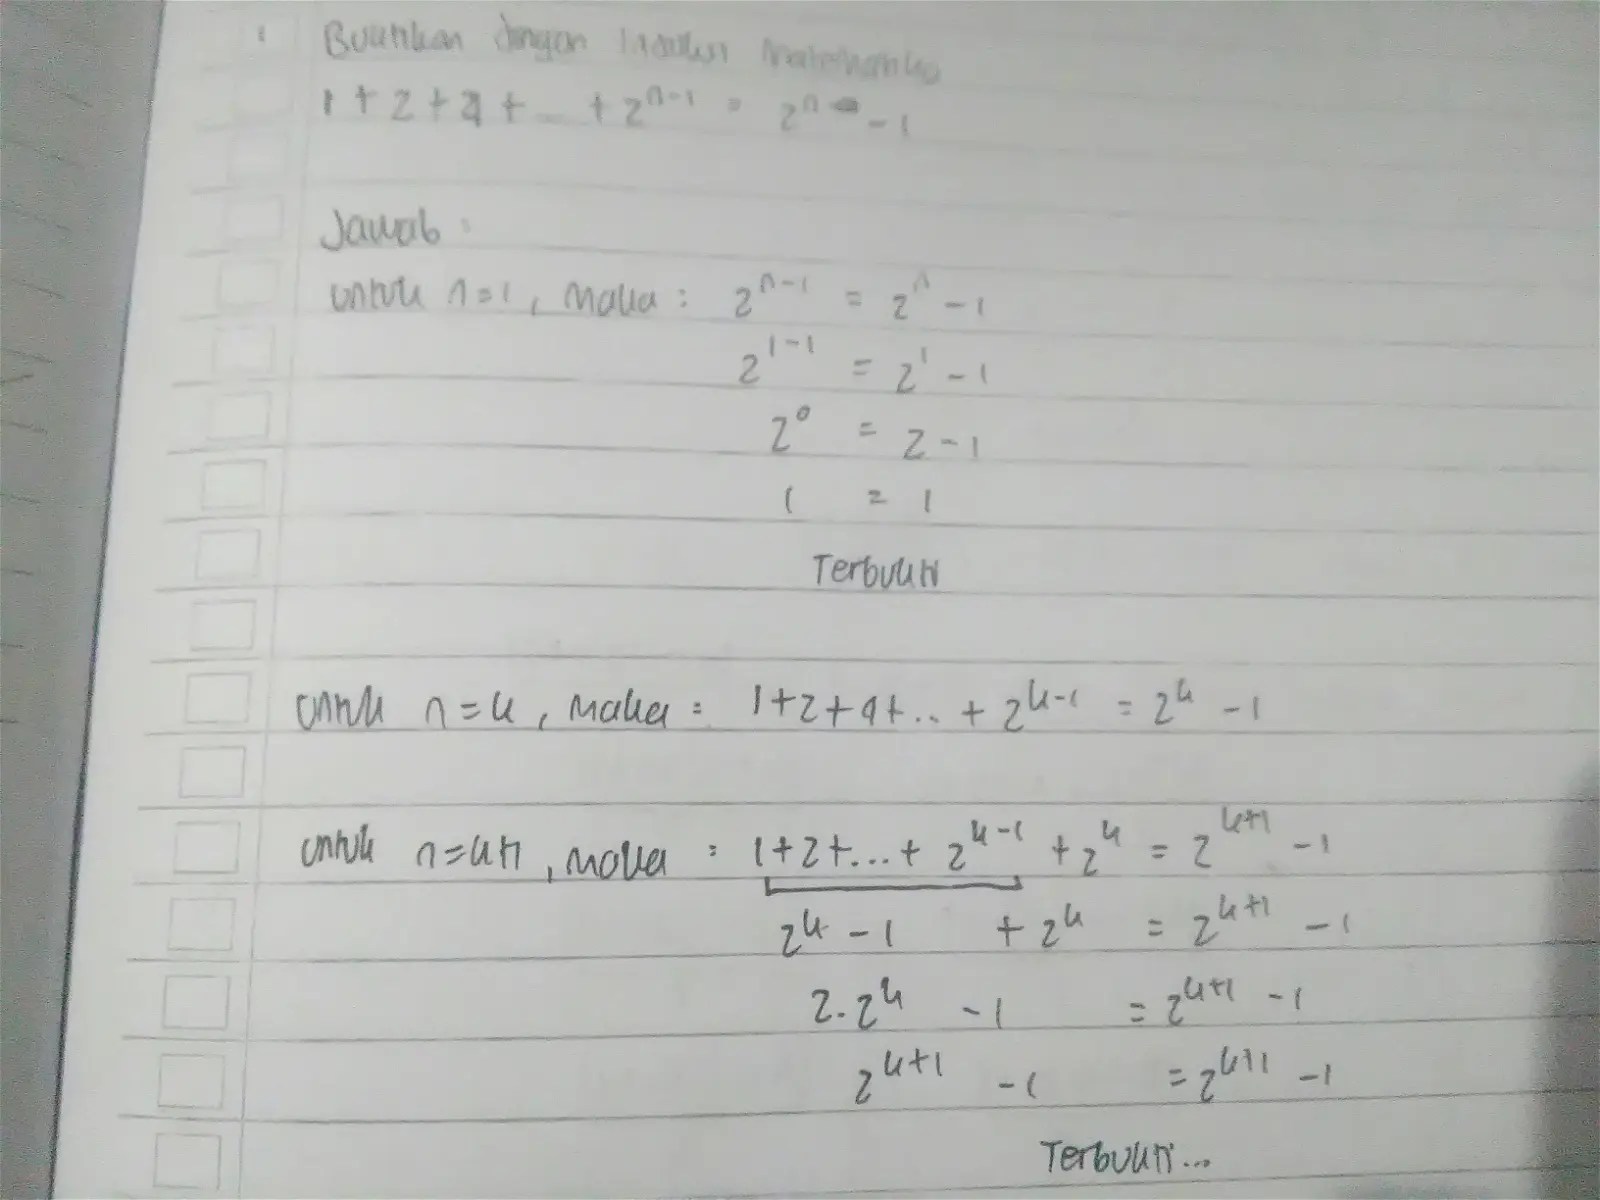 1 Buktikan dengan Induksi Matematika
1 + 2 + 4 + ... + 2^{n-1} = 2^n - 1
Jawab :
untuk n=1, maka : 2^{n-1} = 2^n - 1
2^{1-1} = 2^1 - 1
2^0 = 2 - 1
1 = 1
Terbukti
untuk n=k, maka : 1+2+4+... + 2^{k-1} = 2^k - 1
untuk n=k+1, maka : 1+2+...+ 2^{k-1} + 2^k = 2^{k+1} - 1
2^k - 1 + 2^k = 2^{k+1} - 1
2.2^k - 1 = 2^{k+1} - 1
2^{k+1} - 1 = 2^{k+1} - 1
Terbukti...